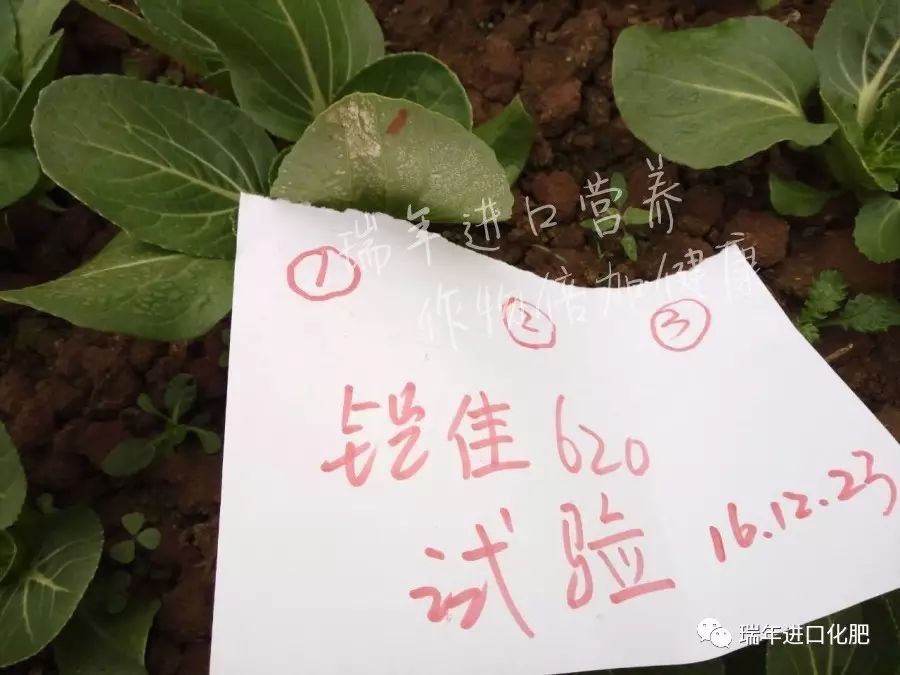 瑞年进口营养
作物倍加健康
① ② ③
铠佳620
试验 16.12.23
瑞年进口化肥